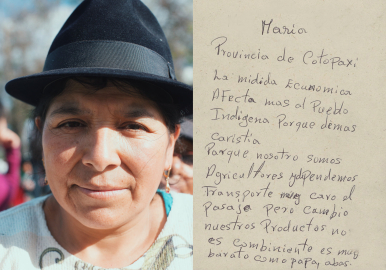 Maria
Provincia de Cotopaxi
La midida Economica
Afecta mas al Pueblo
Indigena Porque demas
Caristia
Parque nosotro somos
Agricultores y dpendemos
Transporte muy caro el
Pasaje Pero cambio
nuestros Productos no
es combiniente es muy
barato como papa, abas.